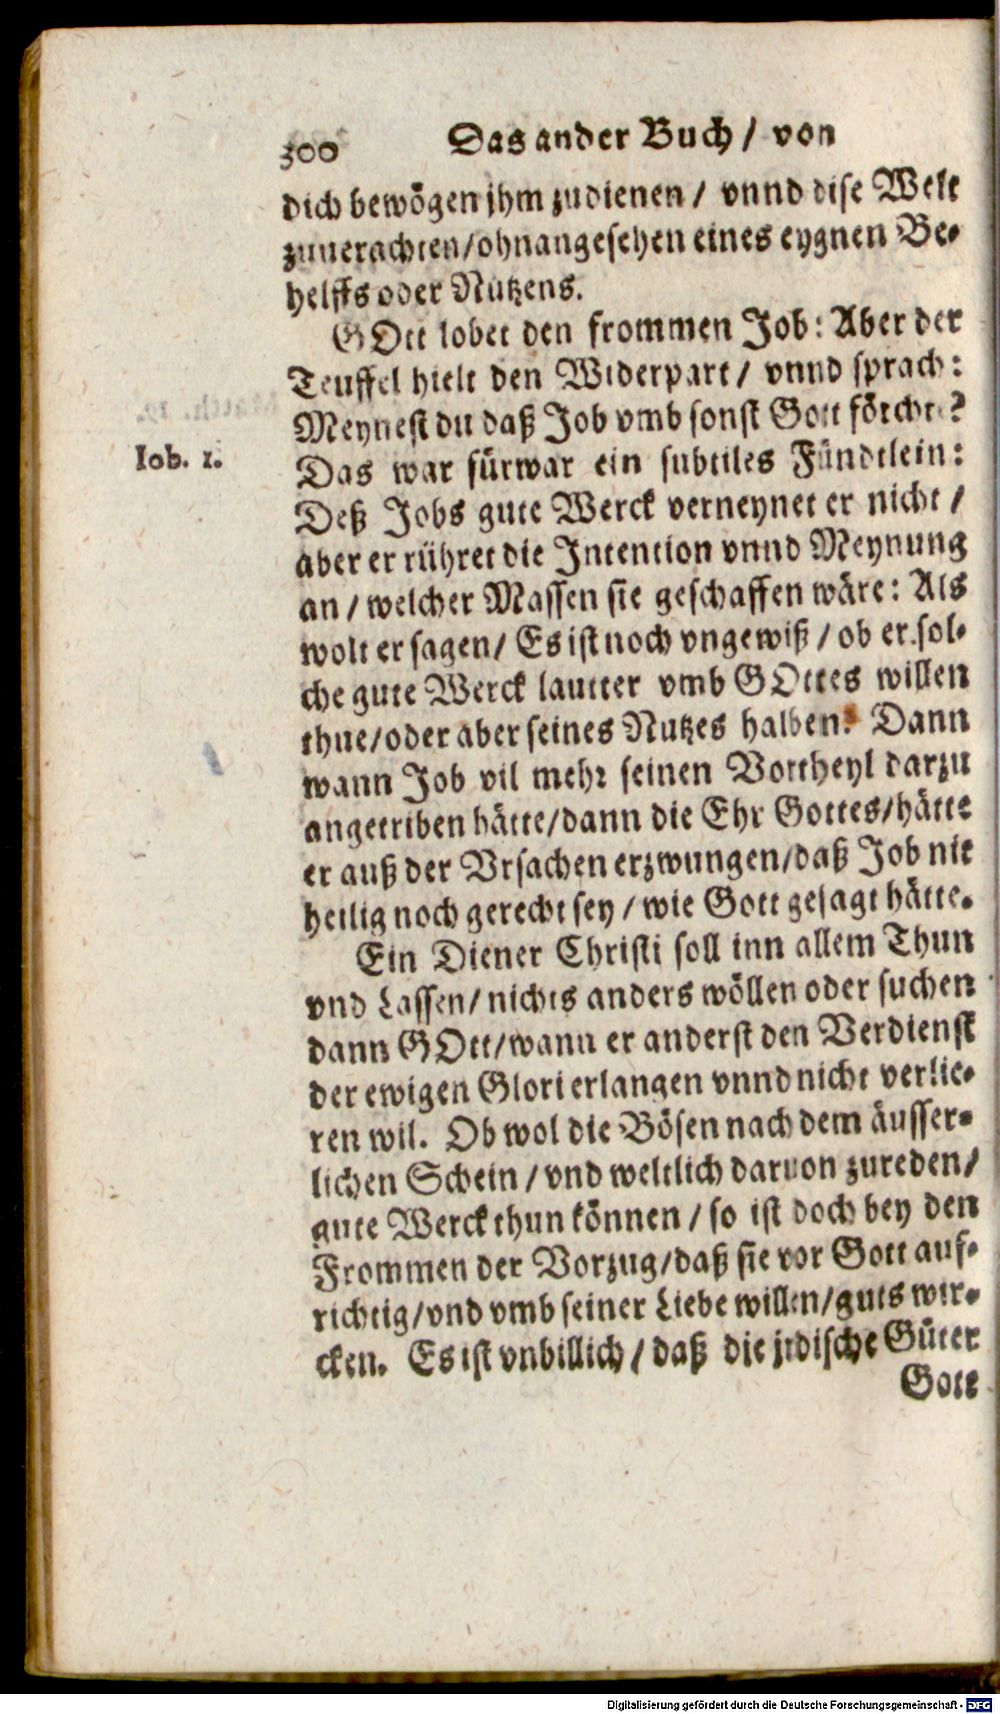 300 Das ander Buch / von
dich bewögen jhm zudienen / vnnd dise Welt
zuuerachten/ohnangesehen eines eygnen Be-
helffs oder Nutzens.
GOtt lobet den frommen Job: Aber der
Teuffel hielt den Widerpart / vnnd sprach:
Meynest du daß Job vmb sonst Gott förchte?
Iob. 1.
Das war fürwar ein subtiles Fündtlein:
Deß Jobs gute Werck verneynet er nicht /
aber er rühret die Intention vnnd Meynung
an / welcher Massen sie geschaffen wäre: Als
wolt er sagen/ Es ist noch vngewiß / ob er sol-
che gute Werck lautter vmb GOttes willen
thue/oder aber seines Nutzes halben? Dann
wann Job vil mehr seinen Vortheyl darzu
angetriben hätte/dann die Ehr Gottes/hätte
er auß der Vrsachen erzwungen/daß Job nit
heilig noch gerecht sey / wie Gott gesagt hätte.
Ein Diener Christi soll inn allem Thun
vnd Lassen/ nichts anders wöllen oder suchen
dann GOtt/wann er anderst den Verdienst
der ewigen Glori erlangen vnnd nicht verlie-
ren wil. Ob wol die Bösen nach dem äusser-
lichen Schein / vnd weltlich daruon zureden/
gute Werck thun können / so ist doch bey den
Frommen der Vorzug/daß sie vor Gott auf-
richtig/vnd vmb seiner Liebe willen/guts wir-
cken. Es ist vnbillich / daß die jrdische Güter
Gott
Digitalisierung gefördert durch die Deutsche Forschungsgemeinschaft - DFG